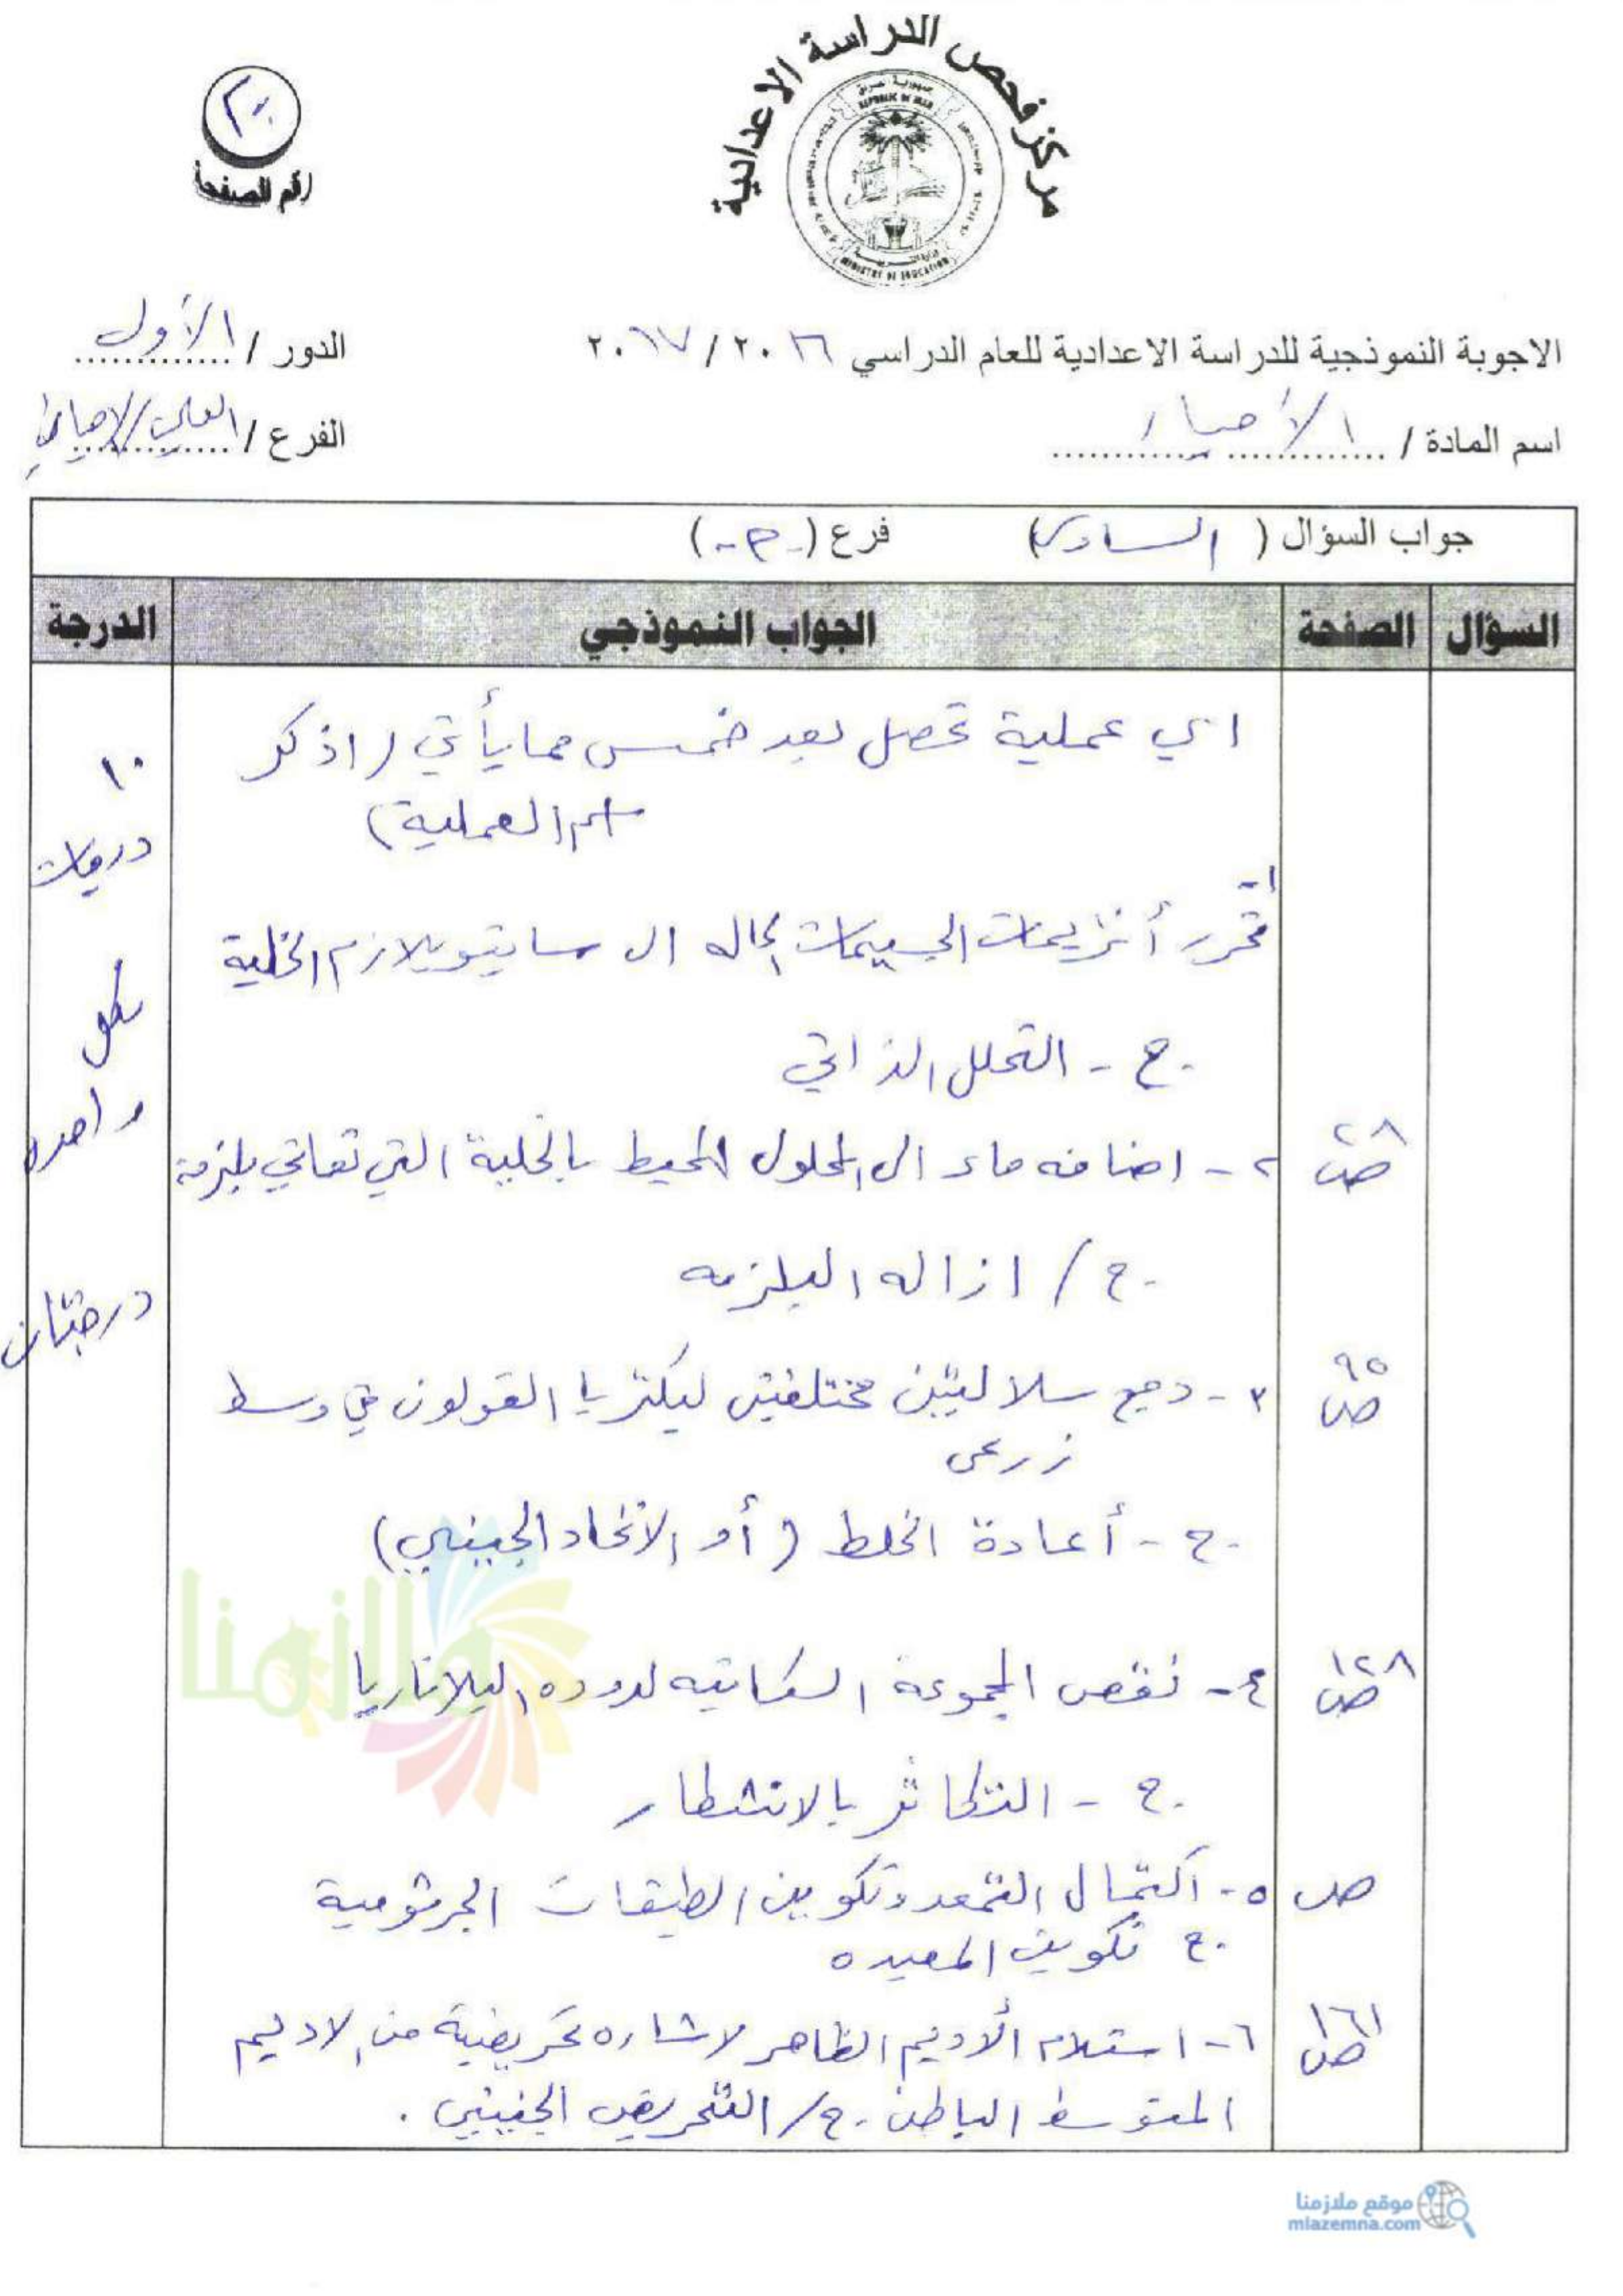 مركز فحص الدراسة الاعدادية
REPUBLIC OF IRAQ
MINISTRY OF EDUCATION
٢٠
رقم الصفحة
الاجوبة النموذجية للدراسة الاعدادية للعام الدراسي ٢٠١٦ / ٢٠١٧
الدور / الأول
اسم المادة / الأحياء
الفرع / العلمي/الاحيائي
جواب السؤال ( السادس ) فرع (-م-)
السؤال الصفحة الجواب النموذجي الدرجة
اي عملية تحصل بعد خمس مما يأتي (اذكر
اسم العملية)
١٠
درجات
لكل
واحدة
درجتان
١-
تحرر أنزيمات الجسيمات الحاله الى سايتوبلازم الخلية
ج - التحلل الذاتي
ص ٢٨
٢- اضافه ماء الى المحلول المحيط بالخلية التي تعاني بلزمة
ج / ازاله البلزمه
ص ٩٥
٣- دمج سلاليتين مختلفتين لبكتريا القولون في وسط
زرعي
ج - أعادة الخلط (أو الاتحاد الجيني)
ص ١٢٨
٤- نقص المجموعة السكانيه لدوده البلاناريا
ج - التكاثر بالانشطار
ص
٥- اكتمال التمعد وتكوين الطبقات الجرثومية
ج تكوين المعيده
ص ١٦١
٦- استلام الأديم الظاهر لاشاره تحريضية من الاديم
المتوسط الباطن. ج/ التحريض الجنيني.
ملازمنا
موقع ملازمنا
mlazemna.com